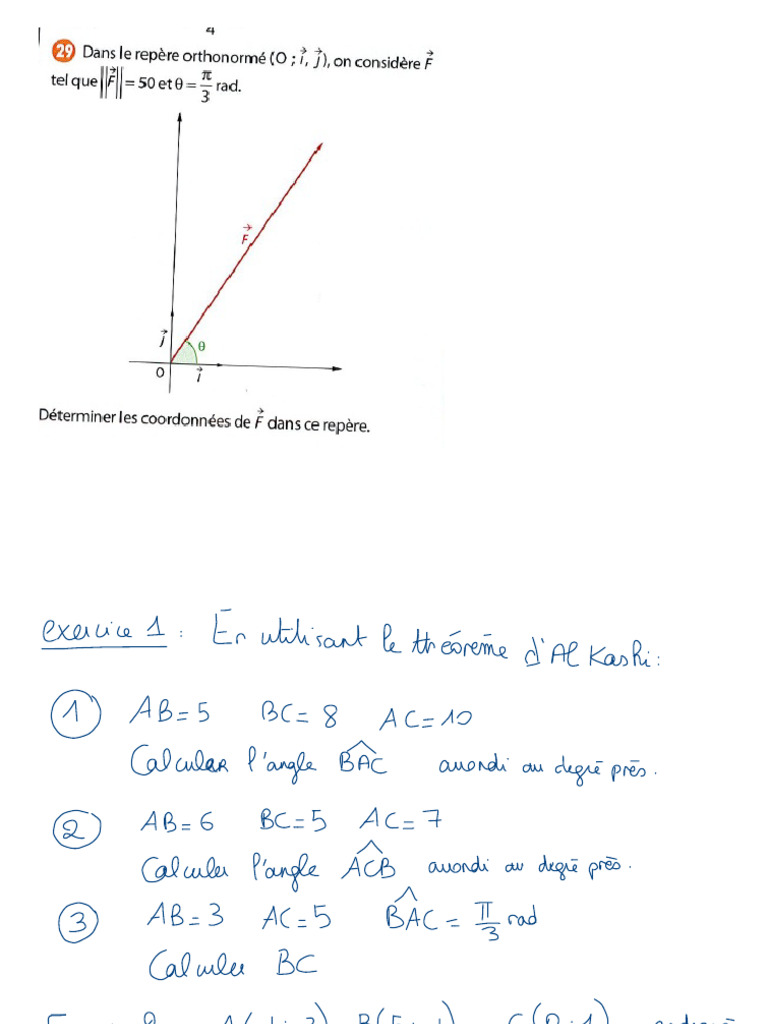 4
29 Dans le repère orthonormé (O ; i⃗, j⃗), on considère F⃗
tel que ||F⃗|| = 50 et θ = π/3 rad.
F⃗
j⃗
θ
O
i⃗
Déterminer les coordonnées de F⃗ dans ce repère.
exercice 1 : En utilisant le théorème d'Al Kashi :
1 AB = 5 BC = 8 AC = 10
Calculer l'angle BAC arrondi au degré près.
2 AB = 6 BC = 5 AC = 7
Calculer l'angle ACB arrondi au degré près.
3 AB = 3 AC = 5 BAC = π/3 rad
Calculer BC